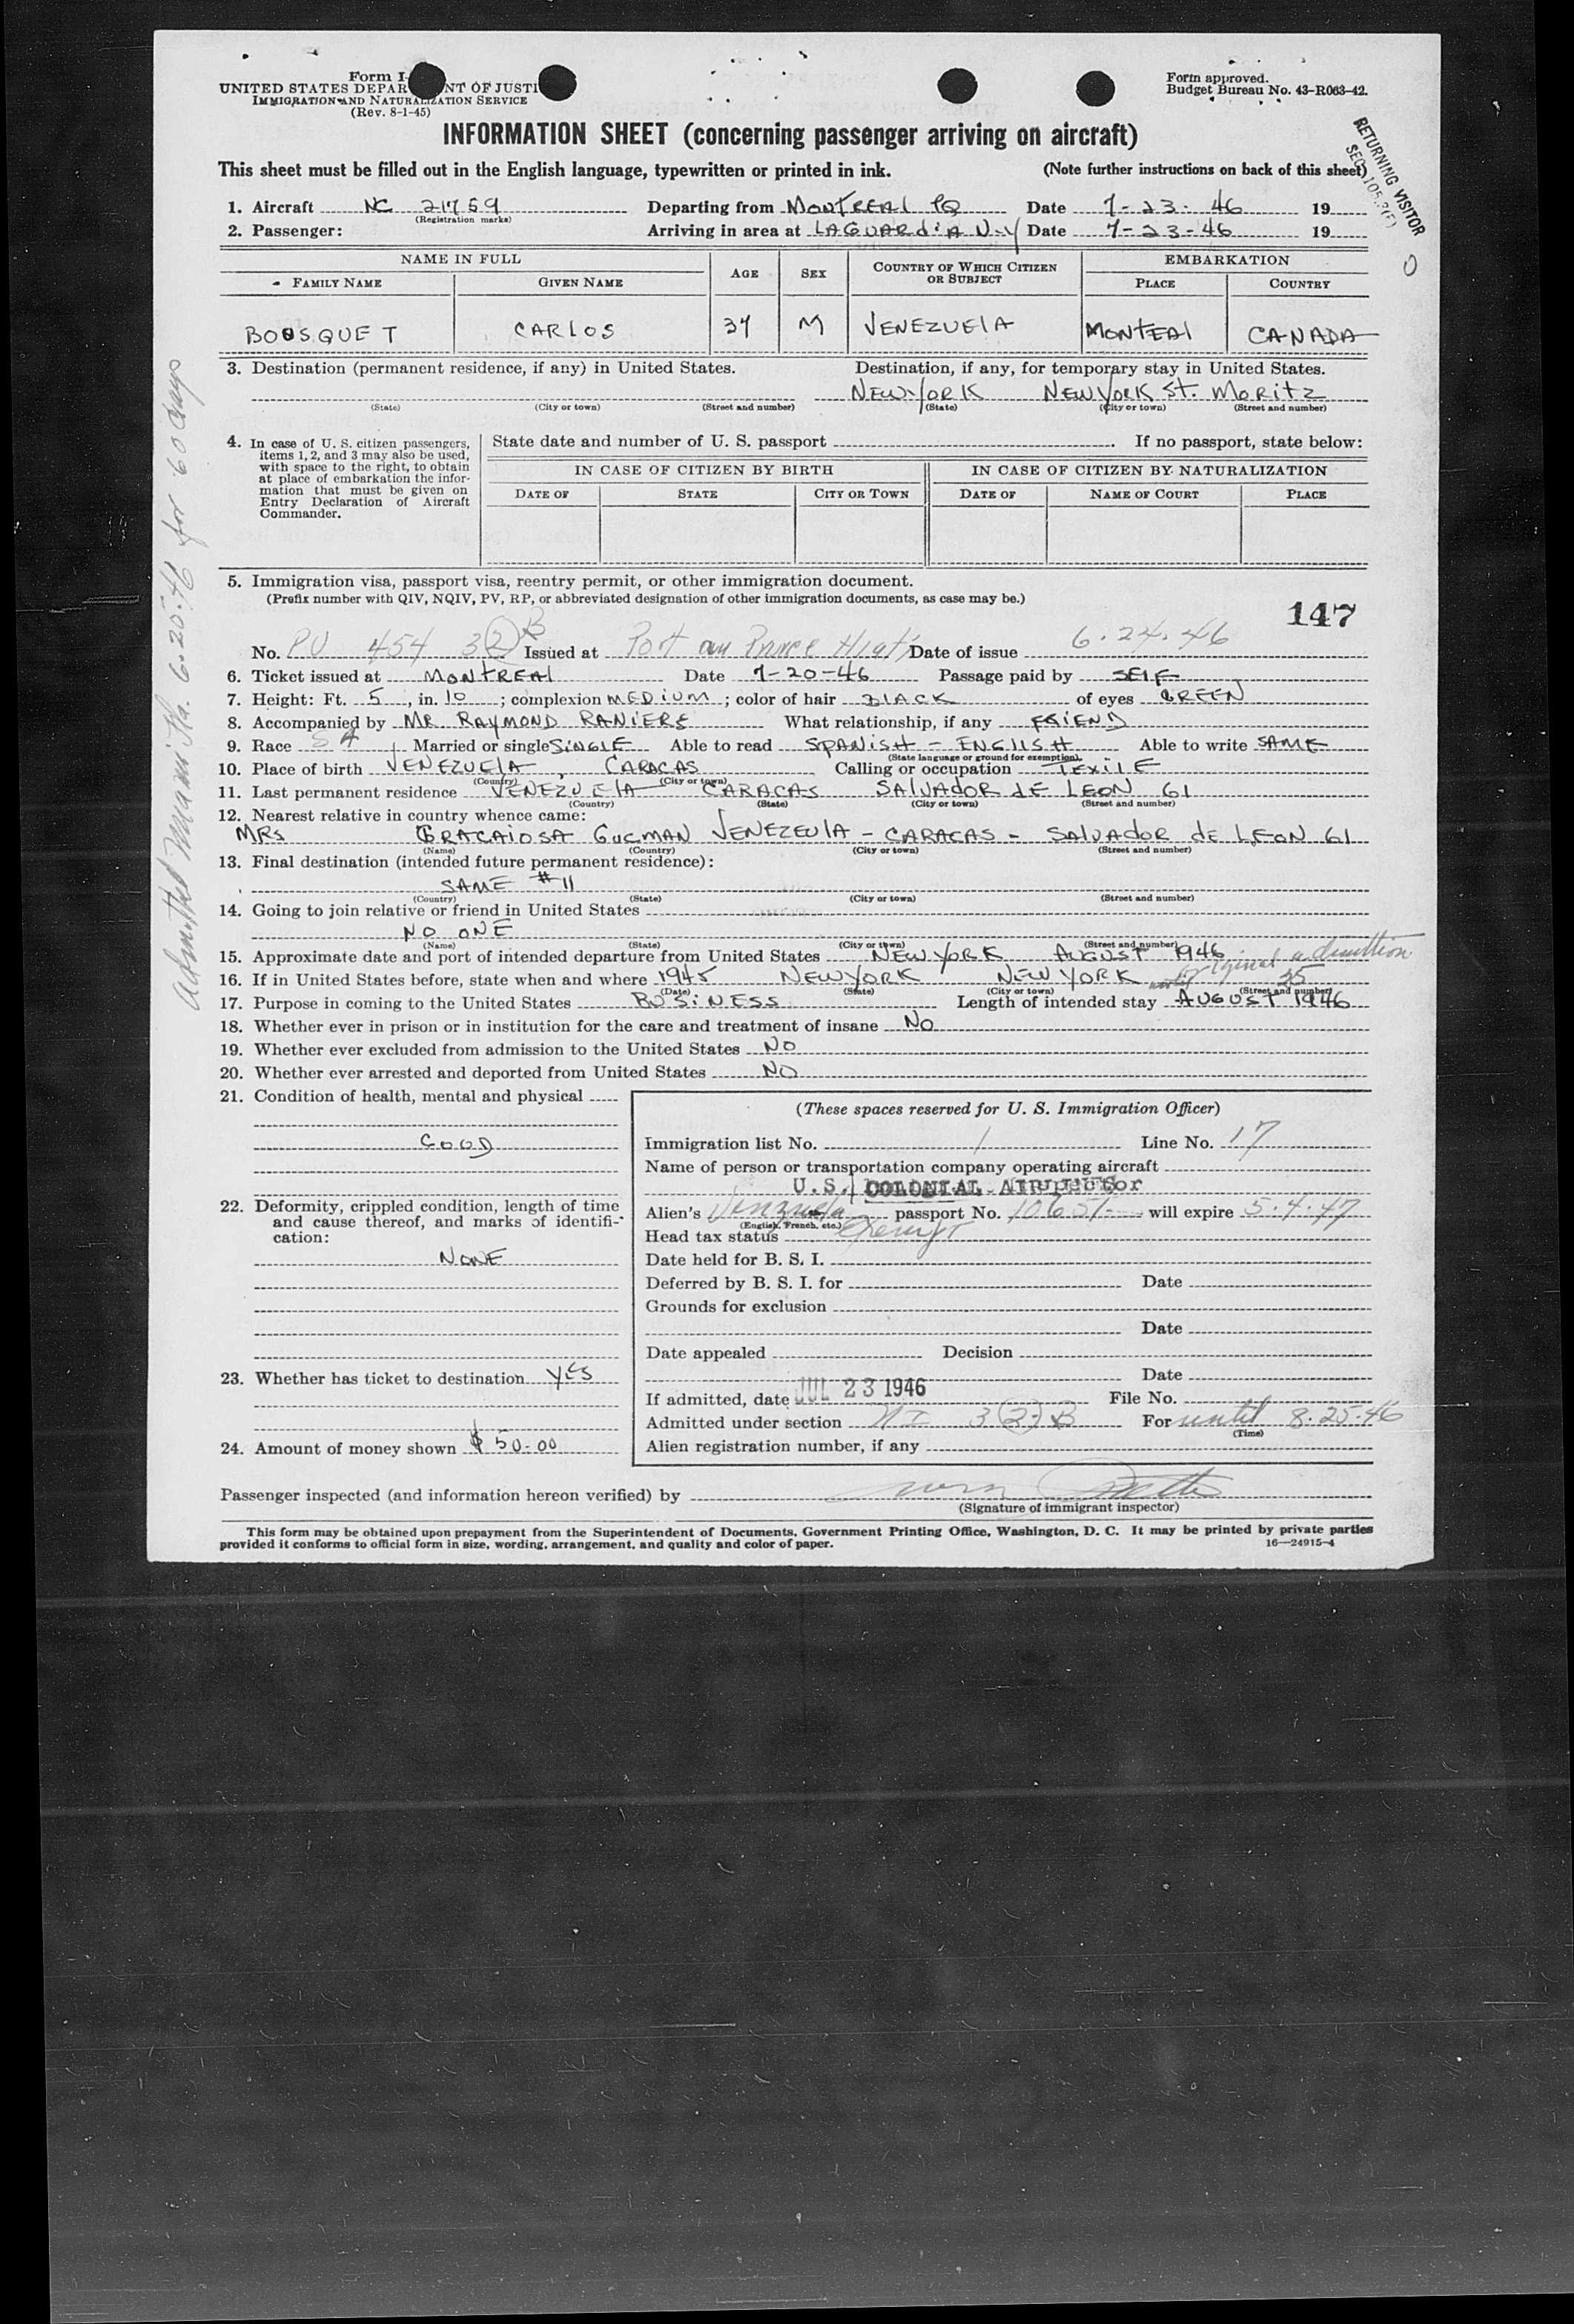 Form I-
UNITED STATES DEPAR NT OF JUSTI
IMMIGRATION AND NATURALIZATION SERVICE
(Rev. 8-1-45)
Form approved.
Budget Bureau No. 43-R063-42.
INFORMATION SHEET (concerning passenger arriving on aircraft)
This sheet must be filled out in the English language, typewritten or printed in ink. (Note further instructions on back of this sheet)
RETURNING VISITOR
1. Aircraft NC 21759 Departing from MONTREAL PQ Date 7-23-46 19
(Registration marks)
2. Passenger: Arriving in area at LAGUARDIA N-Y Date 7-23-46 19
NAME IN FULL AGE SEX COUNTRY OF WHICH CITIZEN OR SUBJECT EMBARKATION
FAMILY NAME GIVEN NAME PLACE COUNTRY
BOUSQUET CARLOS 37 M VENEZUELA MONTEAL CANADA
3. Destination (permanent residence, if any) in United States. Destination, if any, for temporary stay in United States.
NEW YORK NEW YORK ST. MORITZ
(State) (City or town) (Street and number) (State) (City or town) (Street and number)
4. In case of U. S. citizen passengers, items 1, 2, and 3 may also be used, with space to the right, to obtain at place of embarkation the information that must be given on Entry Declaration of Aircraft Commander.
State date and number of U. S. passport . If no passport, state below:
IN CASE OF CITIZEN BY BIRTH IN CASE OF CITIZEN BY NATURALIZATION
DATE OF STATE CITY OR TOWN DATE OF NAME OF COURT PLACE
5. Immigration visa, passport visa, reentry permit, or other immigration document.
(Prefix number with QIV, NQIV, PV, RP, or abbreviated designation of other immigration documents, as case may be.)
147
No. PV 454 3(2)B Issued at Port au Prince Hiati Date of issue 6.24.46
6. Ticket issued at MONTREAL Date 7-20-46 Passage paid by SELF
7. Height: Ft. 5, in. 10; complexion MEDIUM; color of hair BLACK of eyes GREEN
8. Accompanied by MR RAYMOND RANIERE What relationship, if any FRIEND
9. Race SA Married or single SINGLE Able to read SPANISH - ENGLISH Able to write SAME
(State language or ground for exemption)
10. Place of birth VENEZUELA, CARACAS Calling or occupation TEXILE
(Country) (City or town)
11. Last permanent residence VENEZUELA CARACAS SALVADOR de LEON 61
(Country) (State) (City or town) (Street and number)
12. Nearest relative in country whence came:
MRS GRACAIOSA GUCMAN VENEZEULA - CARACAS - SALVADOR de LEON 61
(Name) (Country) (City or town) (Street and number)
13. Final destination (intended future permanent residence):
SAME #11
(Country) (State) (City or town) (Street and number)
14. Going to join relative or friend in United States
NO ONE
(Name) (State) (City or town) (Street and number)
15. Approximate date and port of intended departure from United States NEW YORK AUGUST 1946
16. If in United States before, state when and where 1945 NEW YORK NEW YORK
(Date) (State) (City or town) (Street and number)
17. Purpose in coming to the United States BUSINESS Length of intended stay AUGUST 25 1946
18. Whether ever in prison or in institution for the care and treatment of insane NO
19. Whether ever excluded from admission to the United States NO
20. Whether ever arrested and deported from United States NO
21. Condition of health, mental and physical
GOOD
22. Deformity, crippled condition, length of time and cause thereof, and marks of identification:
NONE
23. Whether has ticket to destination YES
24. Amount of money shown $50.00
(These spaces reserved for U. S. Immigration Officer)
Immigration list No. 1 Line No. 17
Name of person or transportation company operating aircraft
U.S. COLONIAL
Alien's Venzuela passport No. 10651 will expire 5.4.47
(English, French, etc.)
Head tax status exempt
Date held for B. S. I.
Deferred by B. S. I. for Date
Grounds for exclusion
Date
Date appealed Decision
Date
If admitted, date JUL 23 1946 File No.
Admitted under section NI 3(2)B For until 8.25.46
(Time)
Alien registration number, if any
Passenger inspected (and information hereon verified) by
(Signature of immigrant inspector)
This form may be obtained upon prepayment from the Superintendent of Documents, Government Printing Office, Washington, D. C. It may be printed by private parties
provided it conforms to official form in size, wording, arrangement, and quality and color of paper. 16—24915-4
Admitted Miami Fla. 6-25-46 for 60 days